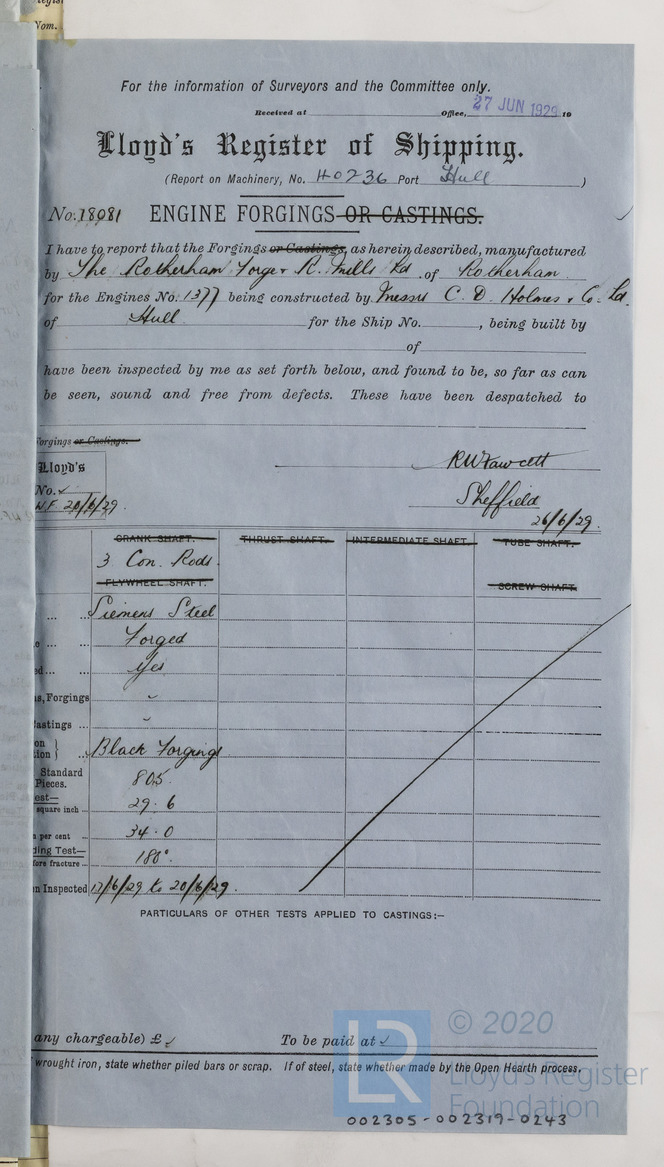 Nom.
For the information of Surveyors and the Committee only.
Received at Office, 27 JUN 1929 19
Lloyd's Register of Shipping.
(Report on Machinery, No. 40236 Port Hull )
No. 18981 ENGINE FORGINGS OR CASTINGS.
I have to report that the Forgings or Castings, as herein described, manufactured
by The Rotherham Forge & R. Mills Ld of Rotherham
for the Engines No. 1377 being constructed by Messrs C. D. Holmes & Co. Ld.
of Hull for the Ship No. , being built by
of
have been inspected by me as set forth below, and found to be, so far as can
be seen, sound and free from defects. These have been despatched to
Forgings or Castings.
Lloyd's
No. ✓
W.F. 20/6/29.
RW Fawcett
Sheffield
26/6/29.
CRANK SHAFT. THRUST SHAFT. INTERMEDIATE SHAFT. TUBE SHAFT.
3 Con. Rods.
FLYWHEEL SHAFT. SCREW SHAFT.
Siemens Steel
Forged
ed... ... yes
Forgings
Castings ...
on } ... Black Forgings
tion }
Standard
Pieces. 805.
est—
square inch ... 29.6
per cent ... 34.0
ding Test—
fore fracture ... 180°.
n Inspected 17/6/29 to 20/6/29.
PARTICULARS OF OTHER TESTS APPLIED TO CASTINGS:—
any chargeable) £ ✓ To be paid at ✓
wrought iron, state whether piled bars or scrap. If of steel, state whether made by the Open Hearth process.
LR
© 2020
Lloyd's Register
Foundation
002305-002319-0243